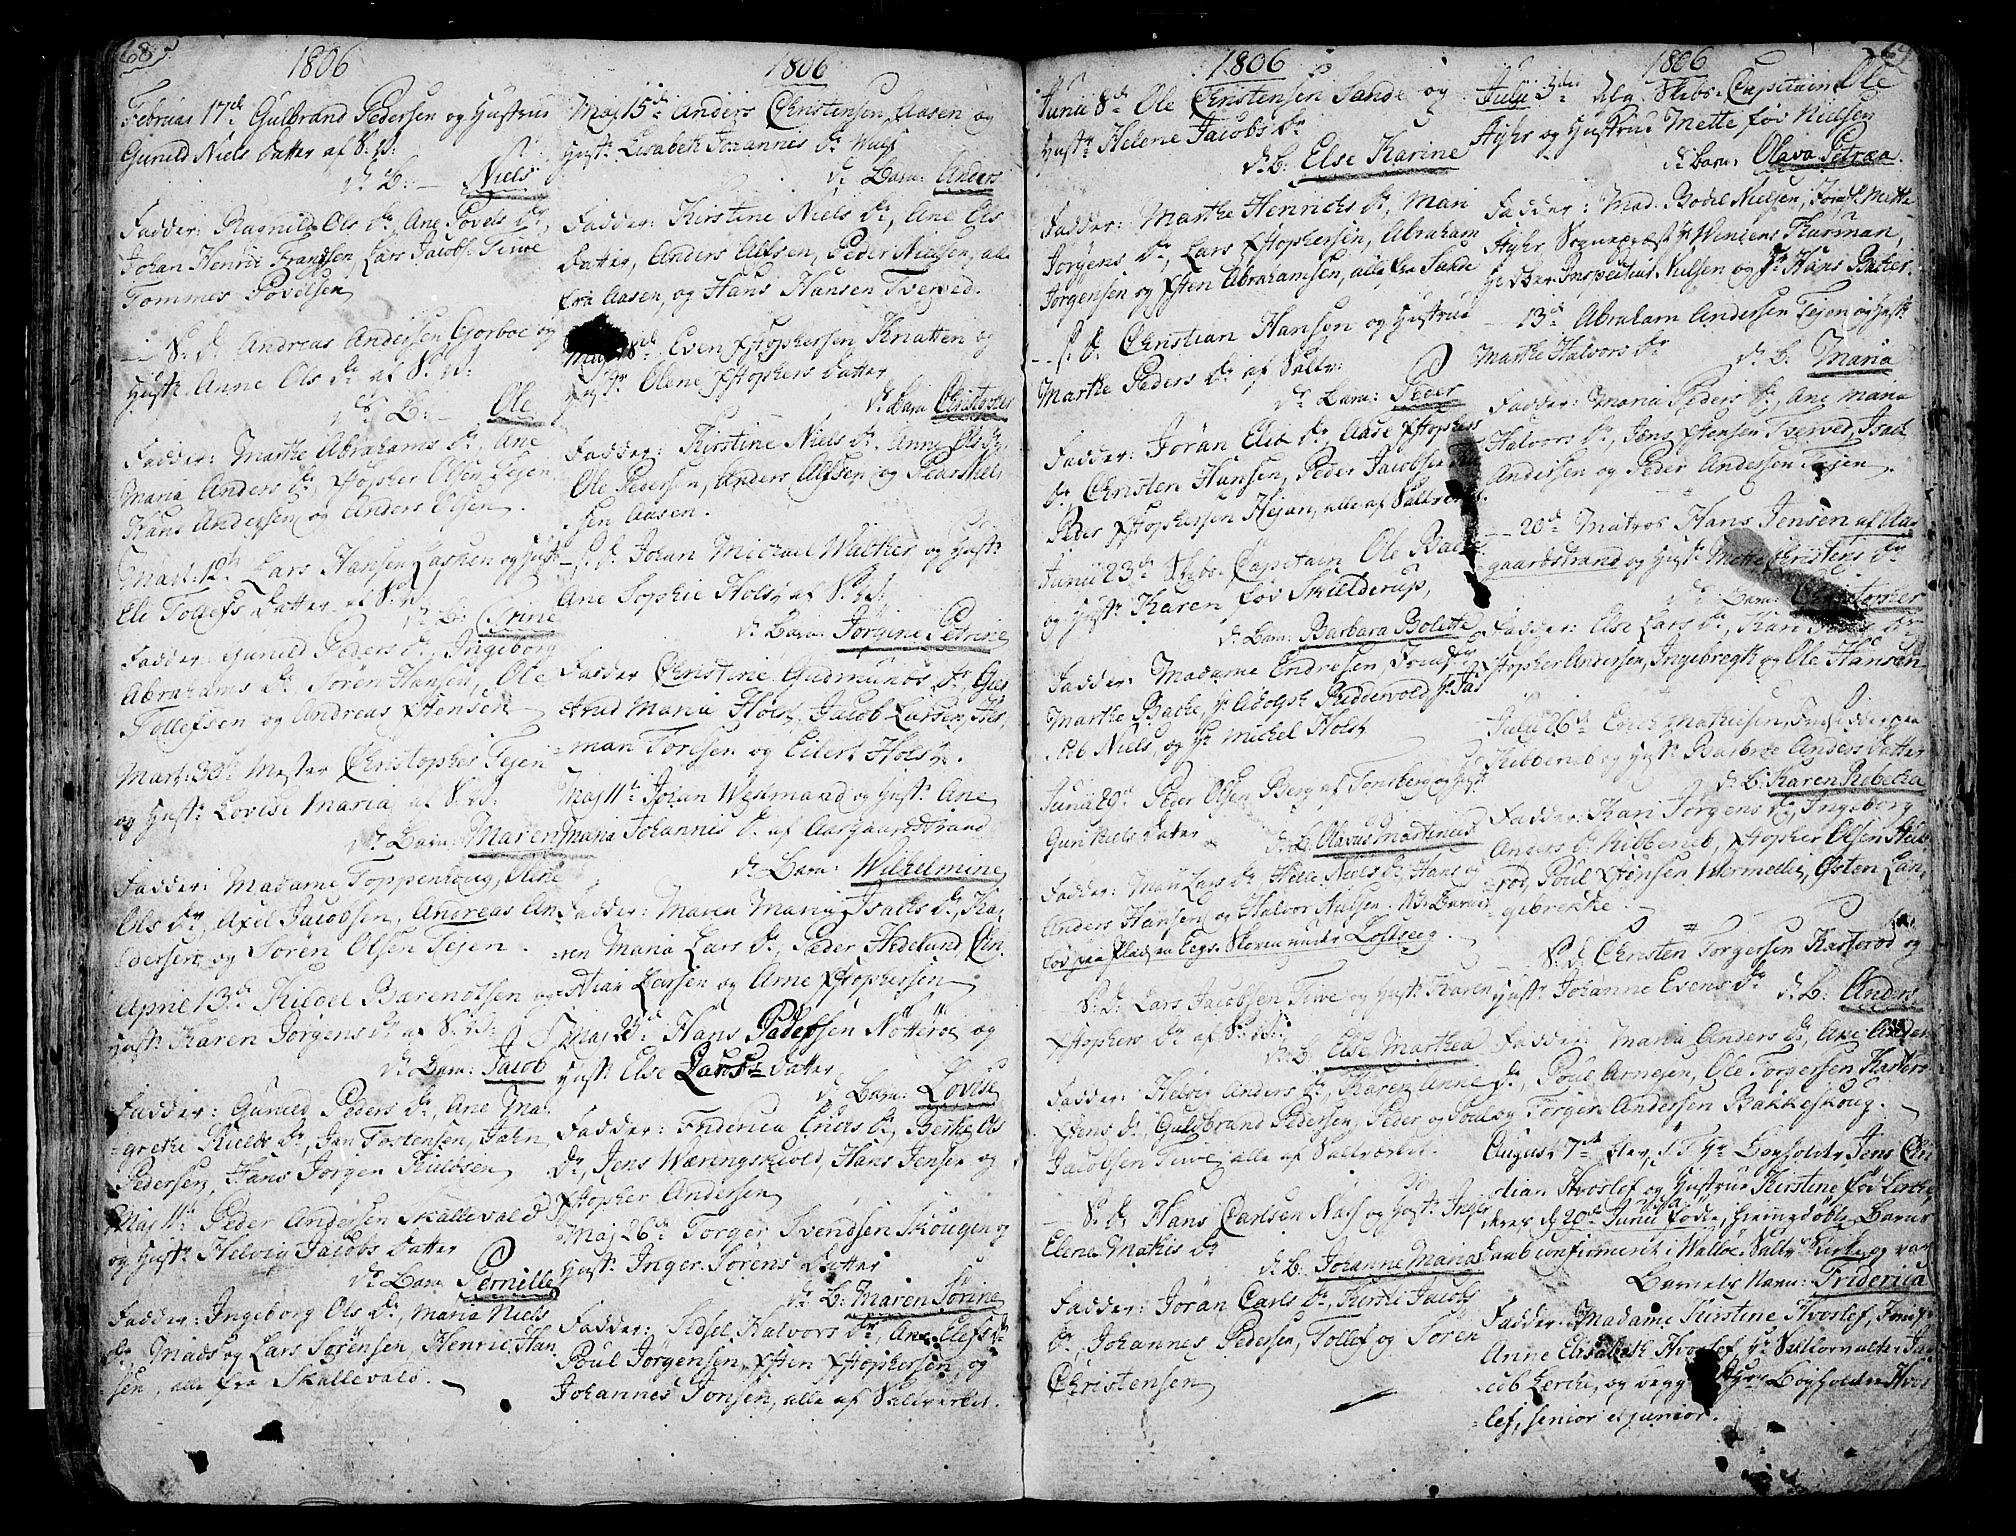 68
1806
Februar 17de Gulbrand Pedersen og Hustrue
Gunild Niels Datter af S. V.
d. B. Niels
Fadder: Ragnild Ols Dr, Ane Povels Dr,
Johan Henric Frandsen, Lars Jacobs. Tewe
Tommes Povelsen
S. D. Andreas Andersen Gorboe og
Hustr. Anne Ols Dr af S. V.
d. B. Ole
Fadder: Marthe Abrahams Dr, Ane
Maria Anders Dr, Xstopher Olsen Tejen
Hans Andersen og Anders Olsen.
Mart. 12te Lars Hansen Lasken og Hustr.
Eli Tollefs Datter af S. V.
d. B. Trine
Fadder: Gunild Peders Dr, Ingeborg
Abrahams Dr, Sören Hansen, Ole
Tollefsen og Andreas Xstensen
Mart. 30te Mester Christopher Tejen
og Hustr. Lovise Maria af S. V.
d. Barn: Maren
Fadder: Madame Toppenhoug, Oline
Ols Dr, Axel Jacobsen, Andreas An
dersen, og Sören Olsen Tejen.
April 13de Kildel Bærendtsen og
Hustr. Karen Jörgens Dr af S. V.
d. Barn: Jacob
Fadder: Gunild Peders Dr, Ane Ma-
-grethe Kields Dr, Jan Torstensen, Jahn
Pedersen, Hans Jörgen Kieldsen
Maj 11te Peder Andersen Skallevald
og Hustr. Helvig Jacobs Datter
d. Barn Pernille
Fadder: Ingeborg Ols Dr, Maria Niels
Dr, Mads og Lars Sörensen, Henric Han
sen, alle fra Skallevald.
1806
Maj 15de Anders Christensen Aasen og
Hustr. Lisabeth Johannes Dr
d. Barn: Anders
Fadder: Kirstine Niels Dr, Ane Els
Datter, Anders Alfsen, Peder Nielsen, alle
fra Aasen, og Hans Hansen Tverved.
Maj 18de Even Xstophersen Knatten og
Hustr. Olene Xstophers Datter
d. Barn Christopher
Fadder: Kirstine Niels Dr, Anne Ols Dr,
Ole Pedersen, Anders Alfsen og
-sen Aasen.
S. D. Johan Michael Walther og Hustr.
Ane Sophie Holst af S. V.
d. Barn: Jörgine Petrine
Fadder Christine Gudmunds Dr, Ger
trud Maria Holst, Jacob Larsen, Her,
-man Toresen og Eilert Holst.
Maj 11te Johan Wehmand og Hustr. Ane
Maria Johannis Dr af Aasgaardstrand
d. Barn: Wilhelmine
Fadder: Maren Maria Isacks Dr, Ka,
-ren Maria Lars Dr, Peder Hedelund, Chri
-stian Larsen og Arne Xstophersen
Maj 23de Hans Pedersen Nötteröe og
Hustr. Else Lars Datter
d. Barn: Lovise
Fadder: Friderica Enders Dr, Berthe Ols
Dr, Jens Wæringskiold, Hans Jensen og
Xstopher Andersen
Maj 26de Torger Svendsen Skougen og
Hustr. Inger Sörens Datter
d. B. Maren Sörine
Fadder: Sidsel Halvors Dr, Ane Elefs Dr
Poul Jörgensen, Xsten Xstophersen, og
Johannes Jonsen, alle af Saltverket.
1806
Junii 8de Ole Christensen Sande og
Hustr. Helene Jacobs Dr
d. B. Else Karine
Fadder: Marthe Henrichs Dr, Mari
Jörgens Dr, Lars Xstophersen, Abraham
Jörgensen og Xsten Abrahamsen, alle fra Sande
S. D. Christian Hansen og Hustrue
Marthe Peders Dr af Saltv.
d. Barn: Peder
Fadder: Jöran Elis Dr, Aase Xstophers
Dr, Christen Hansen, Peder Jacobsen
Peder Xstophersen Hejan, alle af Saltverket.
Junii 23de Skibs Capitain Ole Bache
og Hustr. Karen föd Skielderup,
d. Barn: Barbara Bolette
Fadder: Madame Endresen, Jomfr
Marthe Bache, Hr Adolph Buddevold, Hr Jas
cob Niels, og Hr Michel Holst
Junii 29de Peder Olsen Berg af Tonsberg og Hustr
Guri Niels Datter
d. B. Olavus Martinius
Fadder: Mari Lars Dr, Helle Niels Dr, Hans og
Anders Hansen og Halvor Nielsen. NB. Barnet
föd paa Pladsen Eegs Skoven under Löftteig.
S. D. Lars Jacobsen Tewe og Hustr. Karen
Xstophers Dr af S. V.
d. B. Else Marthea
Fadder: Helvig Anders Dr, Karen Anne
Xstens Dr, Guldbrand Pedersen, Peder og Poul
Jacobsen Tewe, alle af Saltværket.
S. D. Hans Carlsen Næs og Hustr. Inger
Elene Mathis Dr
d. B. Johanne Maria
Fadder: Jöran Carls Dr, Kirsti Jacobs
Dr, Johannes Pedersen, Tollef og Sören
Christensen
1806
Julii 3die Skibs Capitain Ole
Ayhr og Hustrue Mette föd Nielsen
d. Barn: Olava Petræa.
Fadder: Mad. Bodel Nielsen, Jomfr Mette
Ayhr, Sognepræst Hr Wincens Karman,
Inspecteur Nielsen og Hr Hans Bache.
13de Abraham Andersen Tejen og Hustr
Marthe Halvors Dr
d. B. Maria
Fadder: Maria Peders Dr, Ane Maria
Halvors Dr, Jens Xstensen Tverved, Isac
Andersen og Peder Andersen Tejen.
20de Matros Hans Jensen af Aas
gaardstrand og Hustr. Mette Christens Dr
d. Barn: Christopher
Fadder: Else Lars Dr, Kari Dr
Xstopher Andersen, Ingebregth og Ole Hansen
Julii 26de Erich Mathiesen, Inds. Sidder paa
Kibbeneb og Hustr. Barbroe Anders Datter
d. B. Karen Rebecka
Fadder: Kari Jörgens Dr, Ingeborg
Anders Dr Kibbeneb, Xstopher Olsen
röd, Poul Xstensen Wermelie, Østen Lan,
-gebrekke.
S. D. Christen Torgersen Karteröd og
Hustr. Johanne Evens Dr
d. B. Anders
Fadder: Maria Anders Dr, Ane Anders
Dr, Poul Arnesen, Ole Torgersen Karte
og Torger Andersen Bakkeskoug.
August 7de blev Bogholder Jens Chri
stian Hvoslef og Hustrue Kirstine föd Lerche
deres d. 20de Junii födte, hiemmedöbte Barns
Daab confirmeret i Walloe Saltv. Kirke, og var
Barnets Navn: Friderica
Fadder: Madame Kirstine Hvoslef, Jomfr
Anne Elisabeth Hvoslef, Hr Saltforvalter Ja
cob Lerche, og begge Bogholder Hvos
lef, senior et junior.